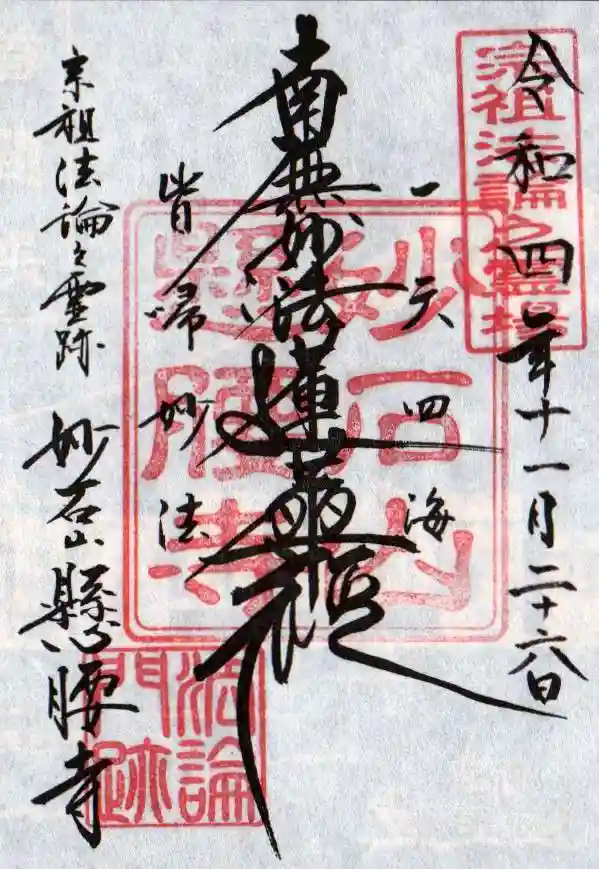 令和四年十一月二十六日
一天四海
南無妙法蓮華經
皆帰妙法
宗祖法論之霊跡
妙石山懸腰寺
宗祖法論之靈場
妙石山
懸腰寺
法論
門跡